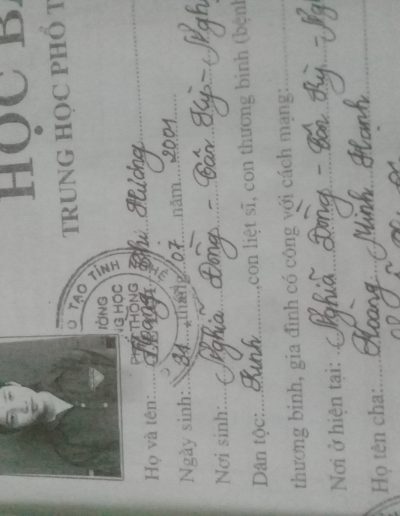 HỌC B
TRUNG HỌC PHỔ T
O TẠO TỈNH
ƯỜNG
NG HỌC
PHỔ THÔNG
Họ và tên: Hoàng Thị Hương
Ngày sinh: 31 tháng 07 năm 2001
Nơi sinh: Nghĩa Đồng - Tân Kỳ - Ngh
Dân tộc: Kinh, con liệt sĩ, con thương binh (bệnh
thương binh, gia đình có công với cách mạng:
Nơi ở hiện tại: Nghĩa Đồng - Tân Kỳ - Ng
Họ tên cha: Hoàng Minh Hạnh